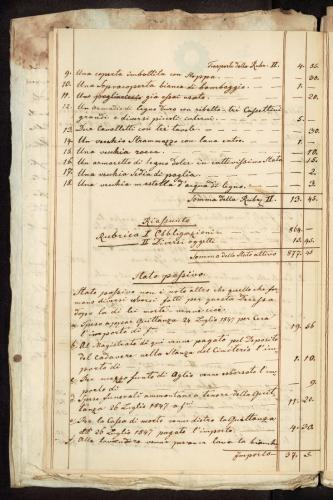 Trasporto della Rubr. II. 4. 35.
9. Una coperta imbottita con stoppa. — 30.
10. Una sopracoperta bianca di bambaggio. 1. —
11. già assai usato. — 20.
12. Un armadio di legno duro con ribalta, tre Cassettini
grandi e diversi piccoli 5. —
13. Due Cavalletti con tre tavole — 30.
14. Un vecchio Stramazzo con lana 1. —
15. Una vecchia rocca. — 10.
16. Un armaretto di legno dolce in cattivissimo Stato — 15.
17. Una vecchia Sedia di paglia. — 2.
18. Una vecchia mastella d'acqua di legno. — 3.
Somma della Rubr. II. 13. 45.
Riassunto
Rubrica I Obbligazioni 864. —
II Diversi oggetti 13. 45.
Somma dello Stato attivo 877. 45
Stato passivo.
Stato passivo non è noto altro che quello che for-
mano diversi sborsi fatti per questa Teresa
dopo la di lei morte
a, Spese appar Quittanza 24 Luglio 1847 per Cera
l'importo di f 19. 66
b, Al Magistrato di qui venne pagato pel Deposito
del Cadavere nella Stanza del Cimiterio l'im-
porto di 1. —
c, Per mezzo funto di Oglio venne esborsato l'im-
porto di — 9.
d, Spese funerali ammontano a tenore della Quit-
tanza 26 Luglio 1847 a f 11. 20.
e, Per la Cassa di morto venne dietro la Quittanza
26 Luglio 1847 pagato l'importo 4. 30.
f, Alla lavandera venne per aver lavato la bianche
Importo 37. 5.